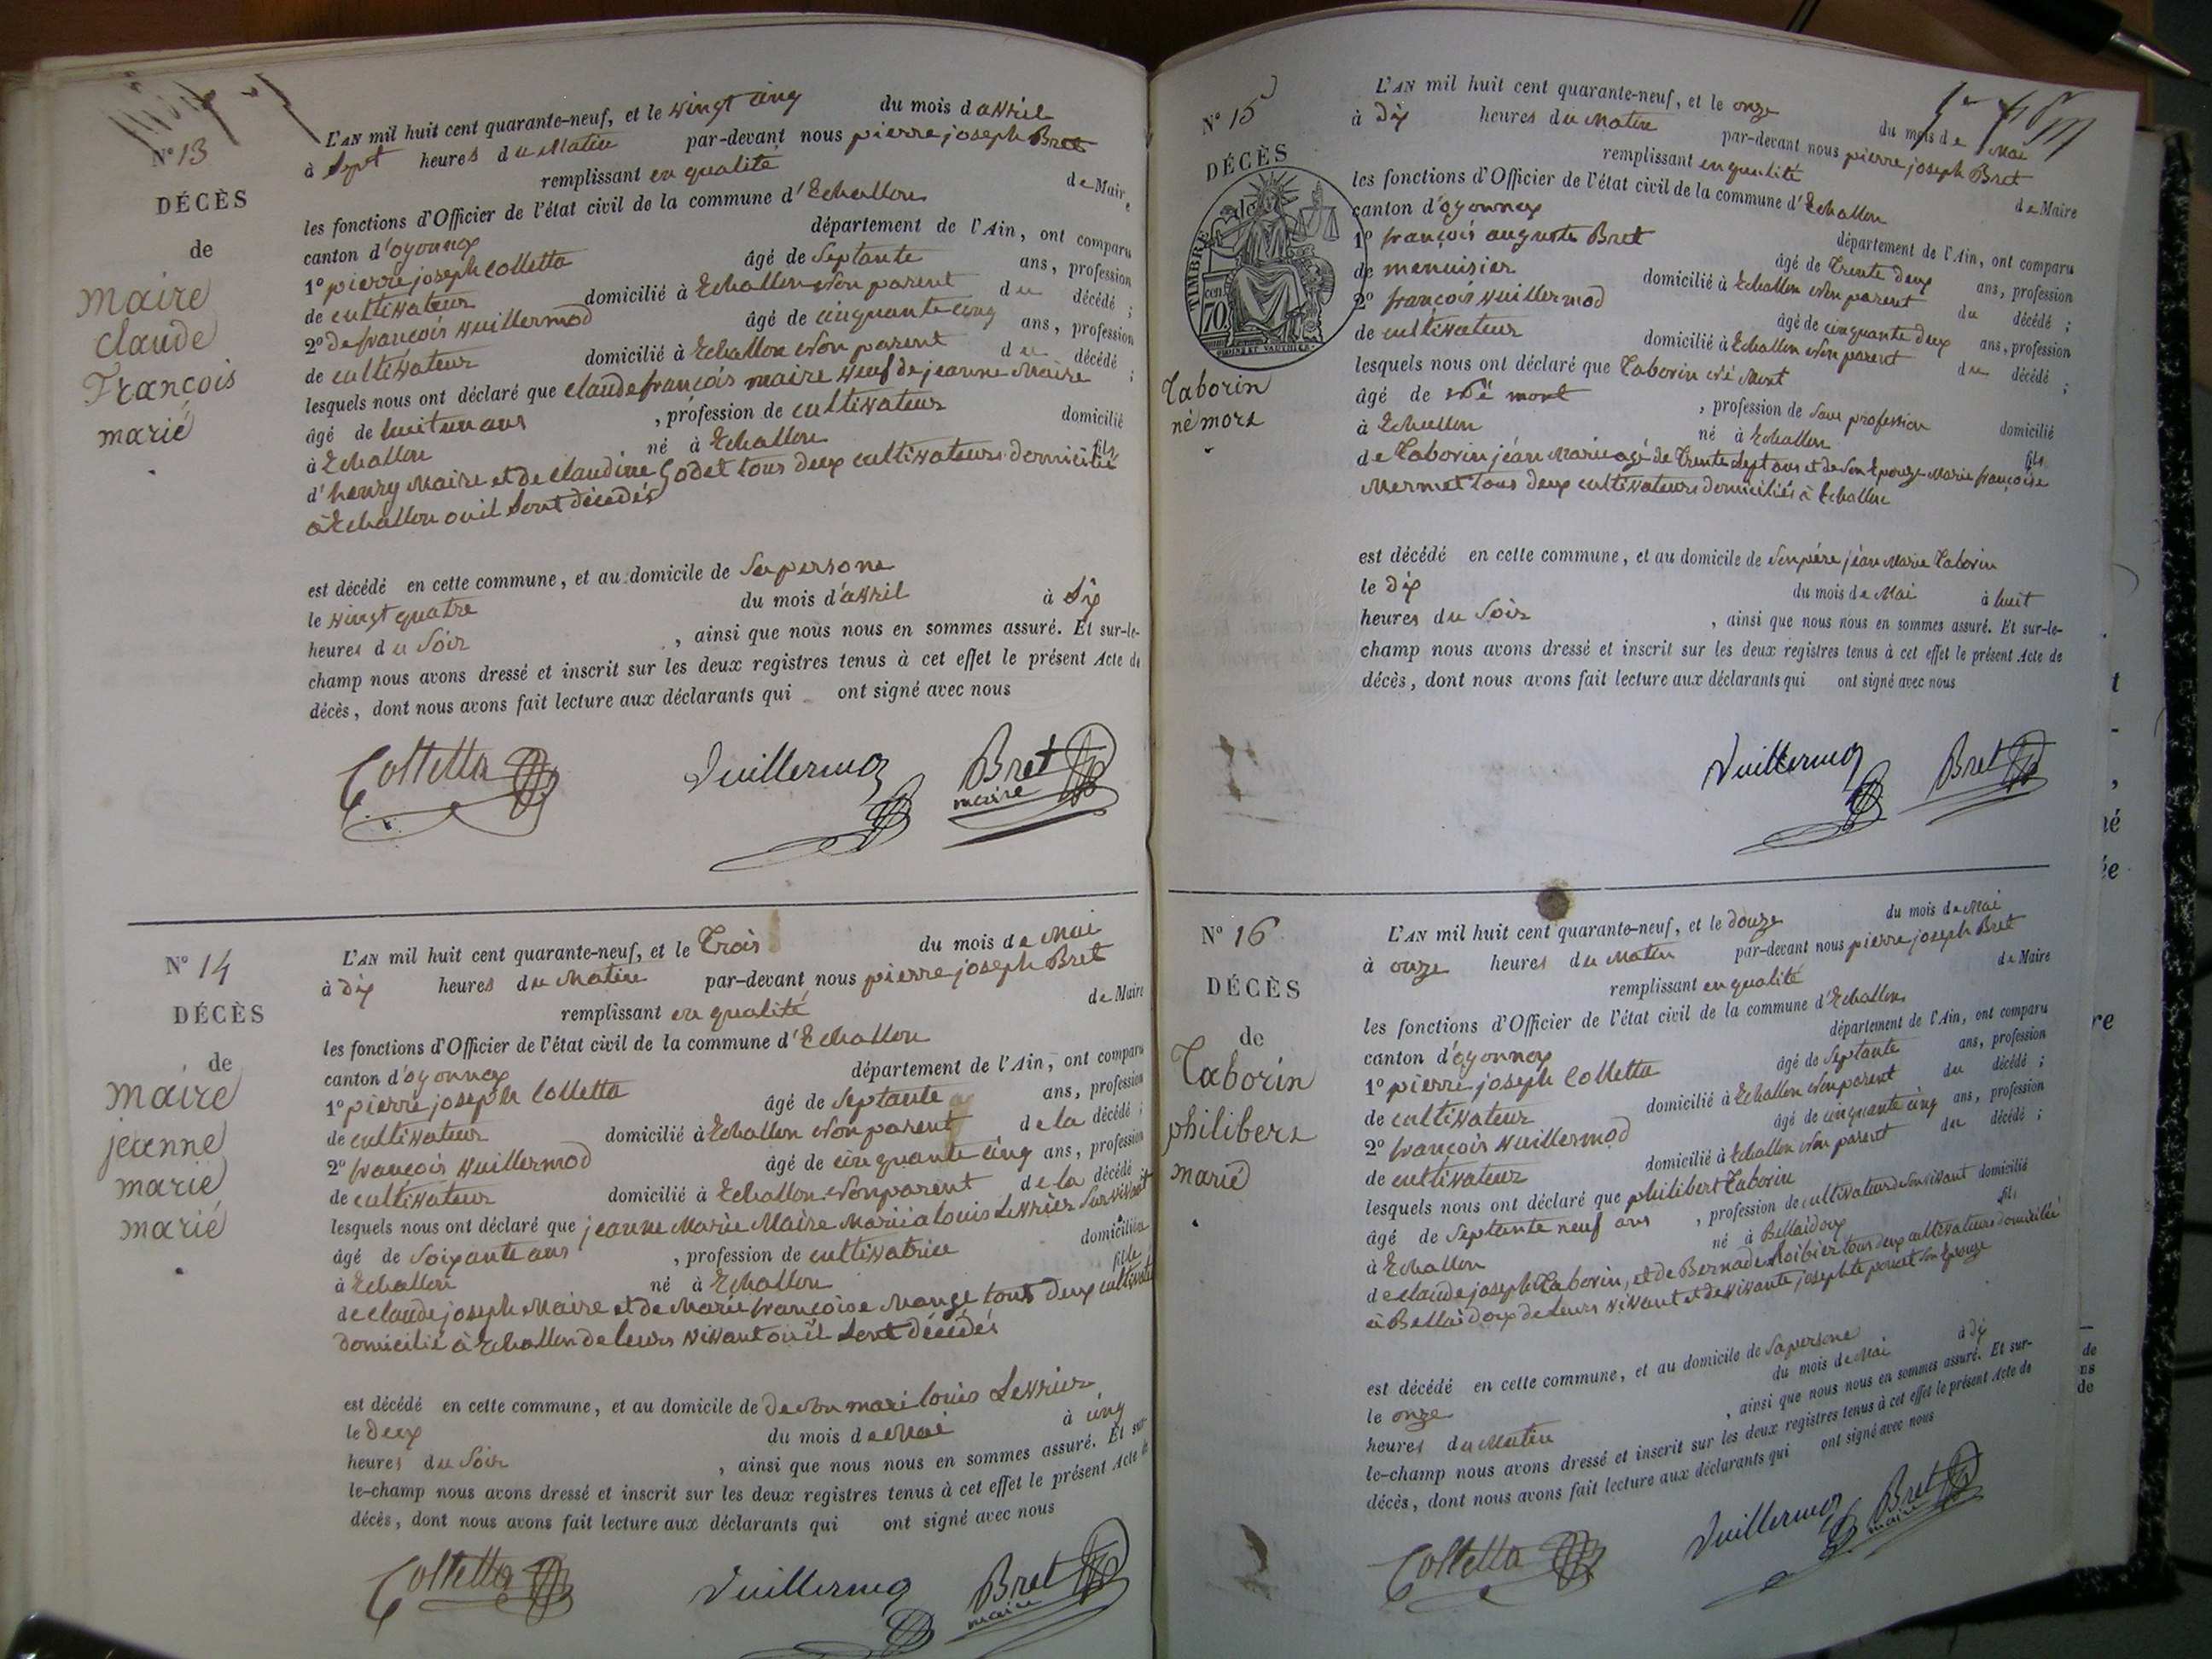 N° 13
DÉCÈS
de
Maire
Claude
François
marié
L'AN mil huit cent quarante-neuf, et le vingt cinq du mois d'avril
à Sept heures du Matin par-devant nous pierre joseph Bret
remplissant en qualité de Maire
les fonctions d'Officier de l'état civil de la commune d'Echallon
canton d'oyonnax département de l'Ain, ont comparu
1° pierre joseph Colletta âgé de Septante ans, profession
de cultivateur domicilié à Echallon non parent du décédé ;
2° de françois Vuillermod âgé de cinquante cinq ans, profession
de cultivateur domicilié à Echallon non parent du décédé ;
lesquels nous ont déclaré que claude françois maire veuf de jeanne Maire
âgé de huit un ans , profession de cultivateur domicilié
à Echallon né à Echallon fils
d'henry Maire et de claudine Godet tous deux cultivateurs domicilié
à Echallon ou il Sont décédés
est décédé en cette commune, et au domicile de Sa persone
le vingt quatre du mois d'avril à Six
heures du Soir , ainsi que nous nous en sommes assuré. Et sur-le-
champ nous avons dressé et inscrit sur les deux registres tenus à cet effet le présent Acte de
décès, dont nous avons fait lecture aux déclarants qui ont signé avec nous
Colletta Vuillermoz Bret
maire
N° 14
DÉCÈS
de
maire
jeanne
marie
marié
L'AN mil huit cent quarante-neuf, et le Trois du mois de Mai
à dix heures du Matin par-devant nous pierre joseph Bret
remplissant en qualité de Maire
les fonctions d'Officier de l'état civil de la commune d'Echallon
canton d'oyonnax département de l'Ain, ont comparu
1° pierre joseph Colletta âgé de Septante ans, profession
de cultivateur domicilié à Echallon non parent de la décédé ;
2° françois Vuillermod âgé de cinquante cinq ans, profession
de cultivateur domicilié à Echallon non parent de la décédé
lesquels nous ont déclaré que jeanne Marie Maire Marié a louis Levrier Survivant
âgé de Soixante ans , profession de cultivatrice domiciliée
à Echallon né à Echallon fille
de claude joseph Maire et de Marie françoise Mange tous deux cultivat
domicilié à Echallon de leurs vivant ou il Sont décédés
est décédé en cette commune, et au domicile de de son mari louis Levrier
le deux du mois de Mai à cinq
heures du Soir , ainsi que nous nous en sommes assuré. Et sur
le-champ nous avons dressé et inscrit sur les deux registres tenus à cet effet le présent Acte
décès, dont nous avons fait lecture aux déclarants qui ont signé avec nous
Colletta Vuillermoz Bret
maire
N° 15
DÉCÈS
de
TIMBRE
cen. 70.
Taborin
né mort
L'AN mil huit cent quarante-neuf, et le onze du mois de Mai
à dix heures du Matin par-devant nous pierre joseph Bret
remplissant en qualité de Maire
les fonctions d'Officier de l'état civil de la commune d'Echallon
canton d'oyonnax département de l'Ain, ont comparu
1° françois auguste Bret âgé de Trente deux ans, profession
de menuisier domicilié à Echallon non parent du décédé ;
2° françois Vuillermod âgé de cinquante deux ans, profession
de cultivateur domicilié à Echallon non parent du décédé ;
lesquels nous ont déclaré que Taborin né Mort
âgé de né mort , profession de Sans profession domicilié
à Echallon né à Echallon fils
de Taborin jean Marie agé de Trente Sept ans et de Son Epouze Marie françoise
Mermet tous deux cultivateurs domiciliés à Echallon
est décédé en cette commune, et au domicile de Son père jean Marie Taborin
le dix du mois de Mai à huit
heures du Soir , ainsi que nous nous en sommes assuré. Et sur-le-
champ nous avons dressé et inscrit sur les deux registres tenus à cet effet le présent Acte de
décès, dont nous avons fait lecture aux déclarants qui ont signé avec nous
Vuillermoz Bret
N° 16
DÉCÈS
de
Taborin
philibert
marié
L'AN mil huit cent quarante-neuf, et le douze du mois de Mai
à onze heures du Matin par-devant nous pierre joseph Bret
remplissant en qualité de Maire
les fonctions d'Officier de l'état civil de la commune d'Echallon
canton d'oyonnax département de l'Ain, ont comparu
1° pierre joseph Colletta âgé de Septante ans, profession
de cultivateur domicilié à Echallon non parent du décédé ;
2° françois Vuillermod âgé de cinquante cinq ans, profession
de cultivateur domicilié à Echallon non parent du décédé ;
lesquels nous ont déclaré que philibert Taborin
âgé de Septante neuf ans , profession de cultivateur de Son vivant domicilié
à Echallon né à Bellaidoux fils
de claude joseph Taborin, et de Bernade Roibier tous deux cultivateurs domiciliée
à Bellaidoux de Leurs vivant et de vivante josephte poncet Son Epouze
est décédé en cette commune, et au domicile de Sa persone
le onze du mois de Mai à dix
heures du Matin , ainsi que nous nous en sommes assuré. Et sur-
le-champ nous avons dressé et inscrit sur les deux registres tenus à cet effet le présent Acte de
décès, dont nous avons fait lecture aux déclarants qui ont signé avec nous
Colletta Vuillermoz Bret
maire